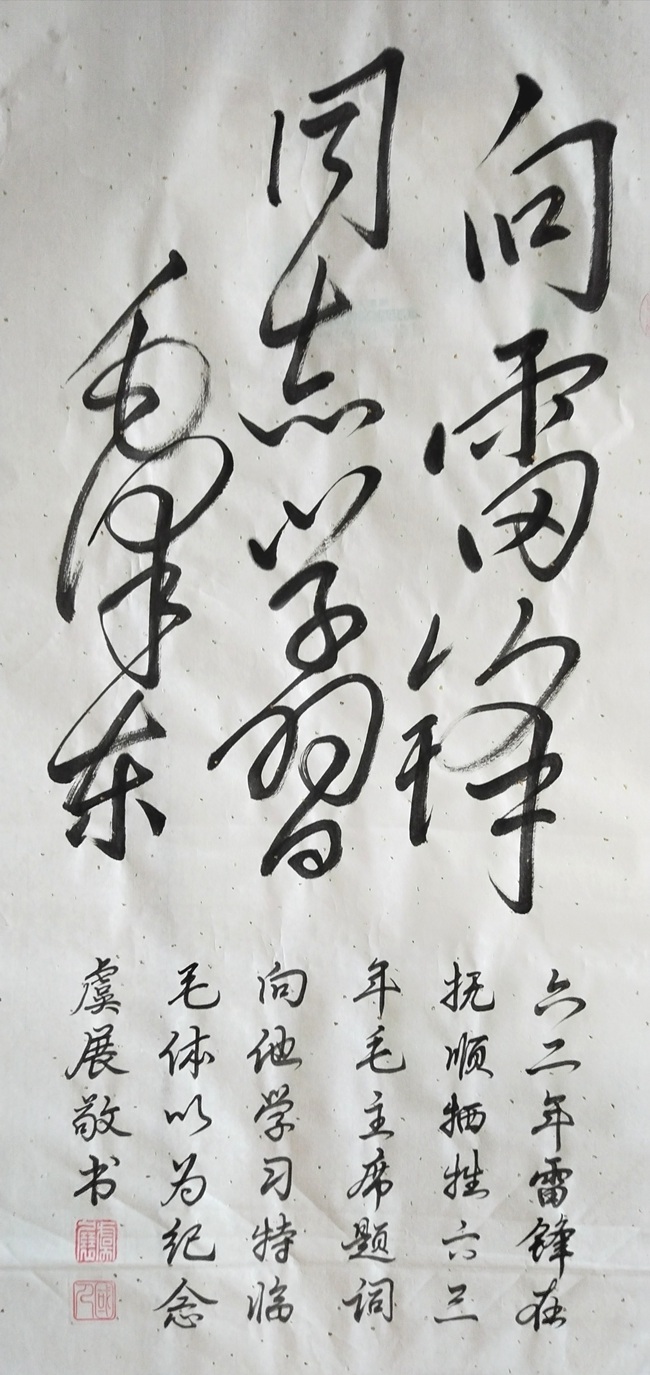 向雷锋
同志学習
毛泽东
六二年雷锋在
抚顺牺牲六三
年毛主席题词
向他学习特临
毛体以为纪念
虞展敬书